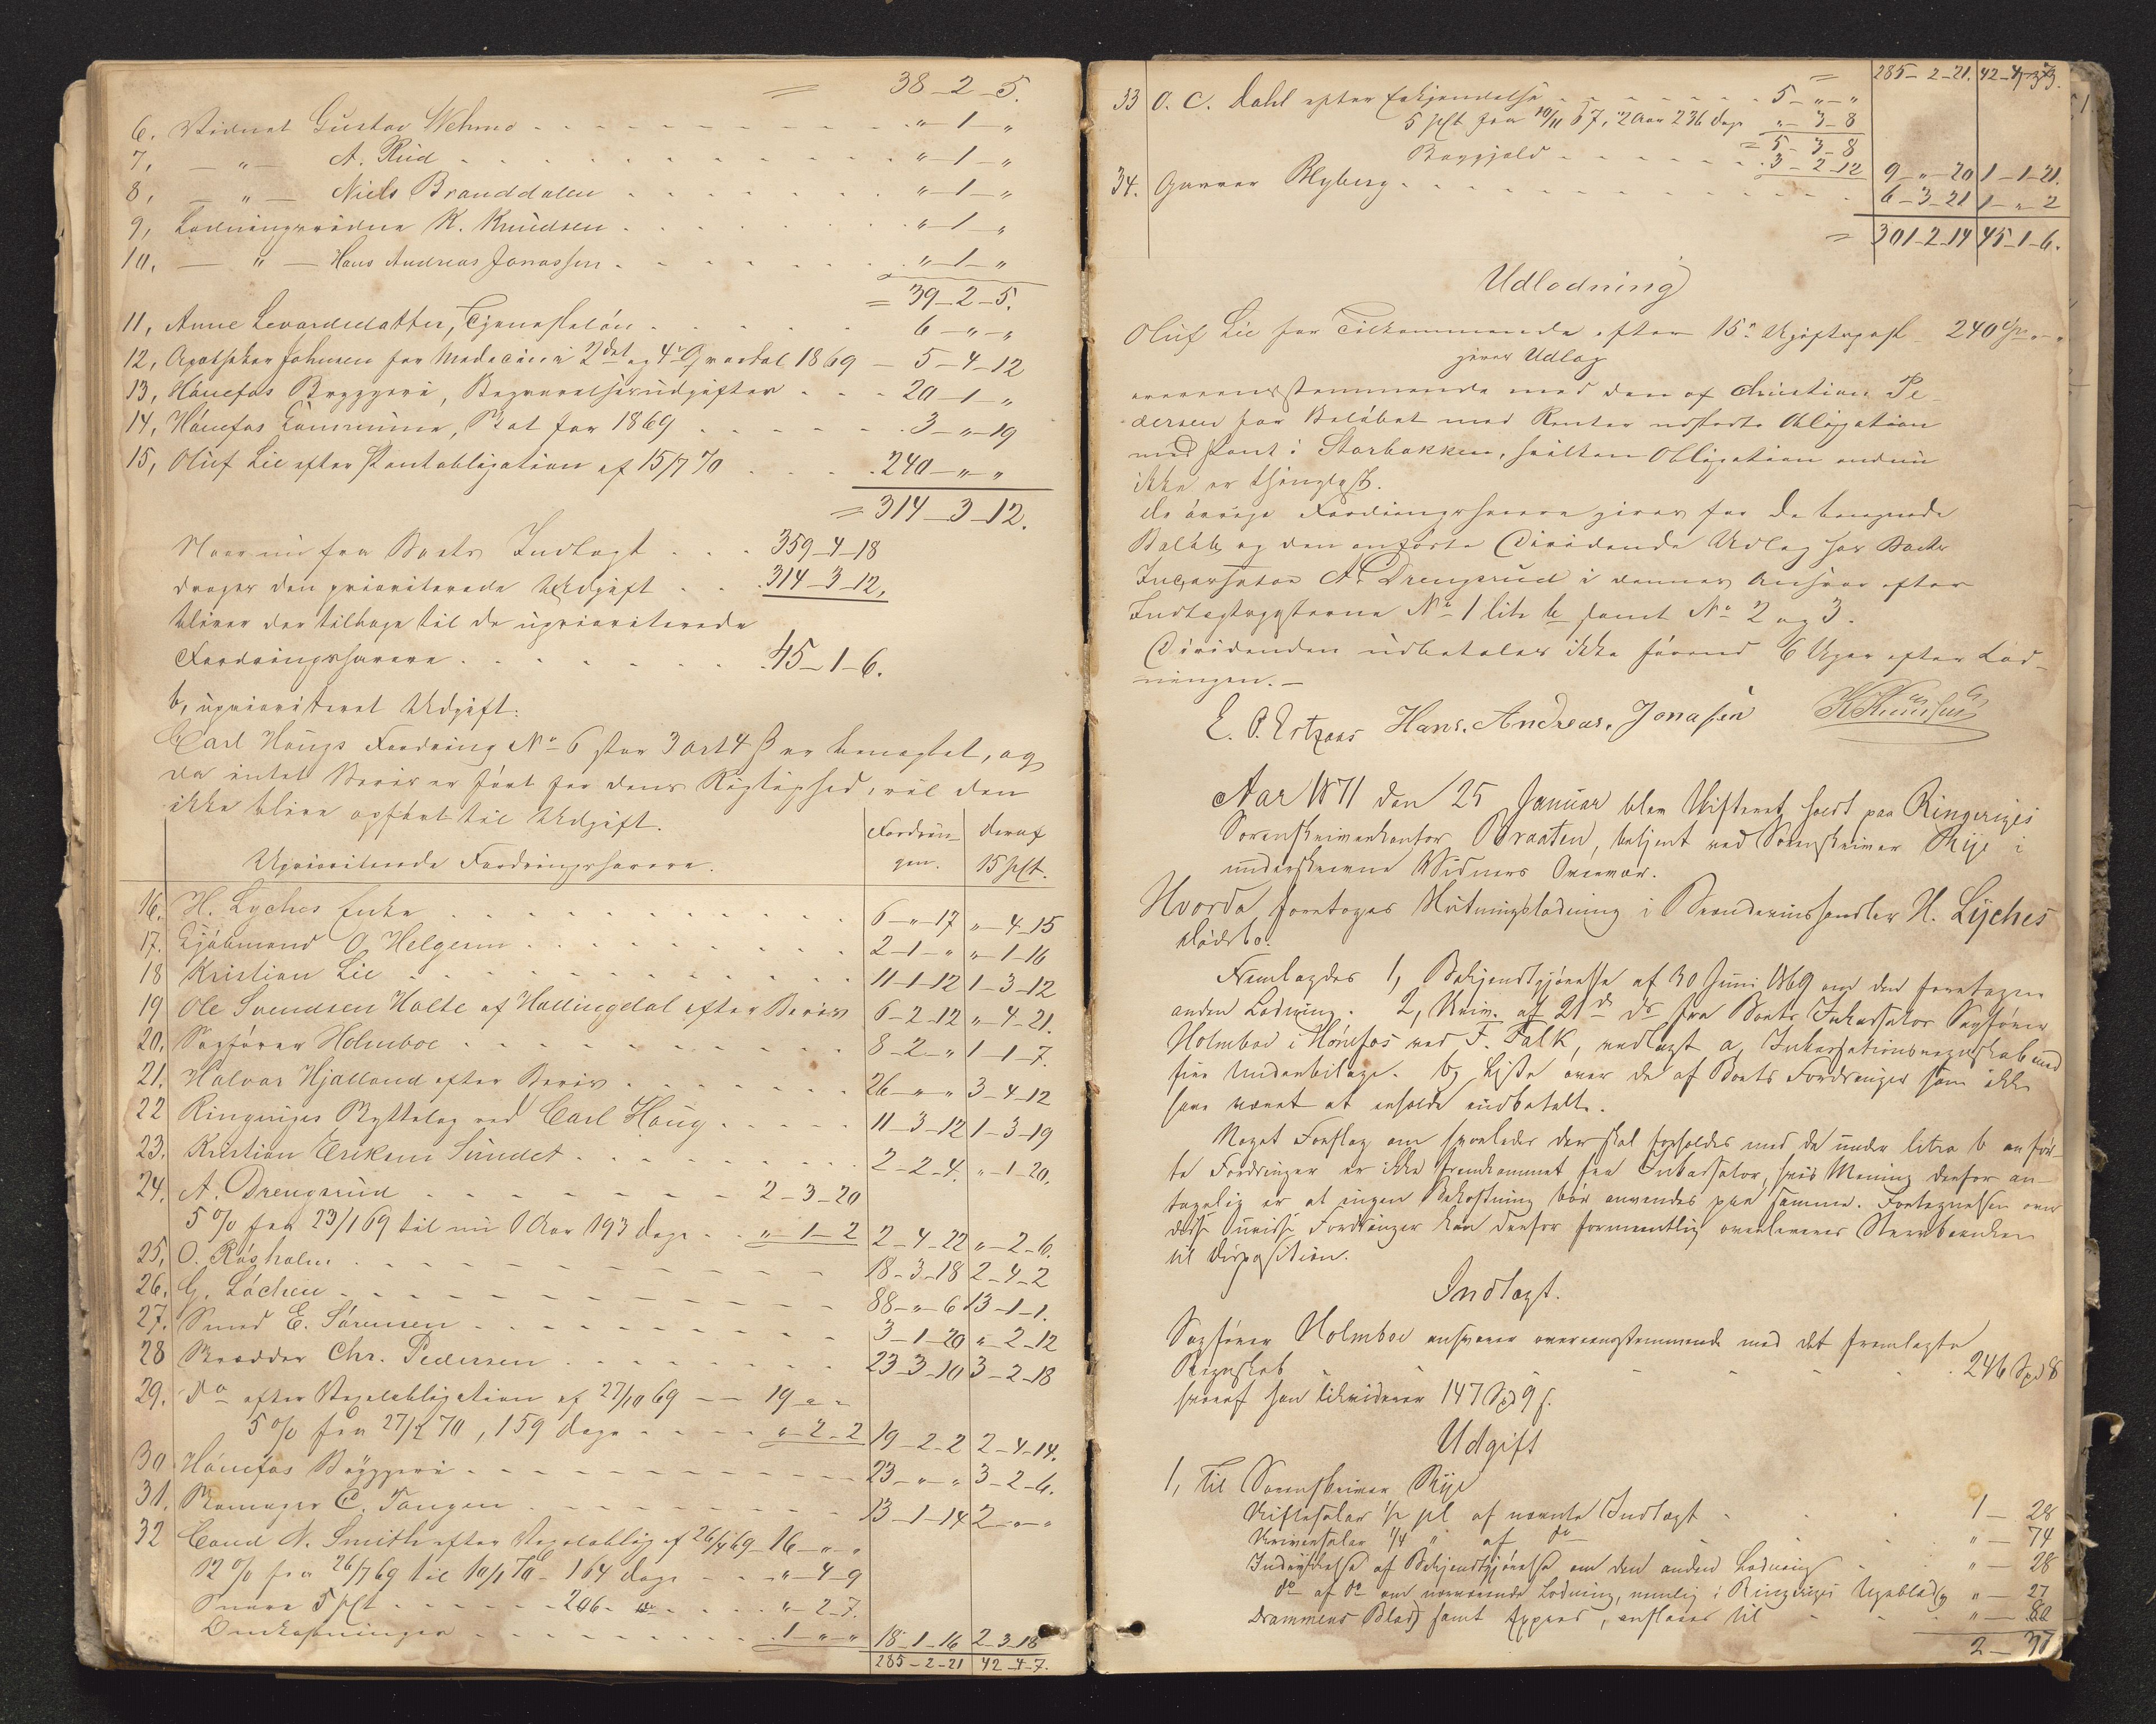 = 38-2-5.
6. Vidnet Gustav Wehme - - - „-1-„
7, -„- A. Rud - - - „-1-„
8, -„- Niels Branddalen - - - „-1-„
9, Lodningsvidne K. Knudsen - - - „-1-„
10. -„- Hans Andreas Jonassen - - - „-1-„
= 39-2-5.
11, Anne Levardsdatter, Tjenesteløn - - - 6-„-„
12, Apotheker Johnsen for Medecin i 2det og 4de Qvartal 1869 - 5-4-12
13, Hønefos Bryggeri, Begravelsesudgifter - - - 20-1-„
14, Hønefos Commune, Skat for 1869 - - - 3-„-19
15, Oluf Lie efter Pantobligation af 15/7 70 - - - 240-„-„
= 314-3-12.
Naar nu fra Boets Indtægt - - - 359-4-18
drages den prioriterede Udgift - - 314-3-12.
bliver der tilbage til de uprioriterede
Fordringshavere - - - 45-1-6.
b, uprioriteret Udgift:
Carl Haugs Fordring No 6 stor 3 ort 4 ß er benægtet, og
da intet Bevis er ført for dens Rigtighed, vil den
ikke blive opført til Udgift.
Uprioriterede Fordringshavere. Fordrin- gen. deraf 15 pCt.
16. H. Lyches Enke - - - 6-„-17 „-4-15
17. Kjøbmand O. Helgesen - - - 2-1-„ „-1-16
18 Kristian Lie - - - 11-1-12 1-3-12
19 Ole Svendsen Holte af Hallingdal efter Bevis 6-2-12 „-4-21.
20. Sagfører Holmboe - - - 8-2-„ 1-1-7.
21. Halvor Hjalland efter Bevis - - - 26-„-„ 3-4-12
22 Ringeriges Skyttelag ved Carl Haug - - - 11-3-12 1-3-19
23. Kristian Eriksen Sundet - - - 2-2-4. „-1-20.
24. A. Drengsrud - - - 2-3-20
5 % fra 23/1 69 til nu 1 Aar 193 dage - - „-1-2 2-4-22 „-2-6.
25. O. Røsholm - - - 18-3-18 2-4-2
26. G. Løchen - - - 88-„-6 13-1-1.
27. Smed E. Sørensen - - - 3-1-20 „-2-12
28 Skrædder Chr. Pedersen - - - 23-3-10 3-2-18
29. Do efter Vexelobligation af 27/10 69 - - 19-„-„
5 % fra 27/2 70, 159 dage - - - „-2-2 19-2-2 2-4-14.
30 Hønefos Bryggeri - - - 23-„-„ 3-2-6.
31. Skomager C. Tangen - - - 13-1-14 2-„-„
32 Cand N. Smith efter Vexelobligs af 26/4 69 - 16-„-„
12 % fra 26/7 69 til 10/1 70 - 164 dage - - „-4-9
Senere 5 pCt - - - 206 - - - „-2-7.
Omkostninger - - - 1-„-„ 18-1-16 2-3-18
285-2-21 42-4-7.
= 285-2-21. 42-4-7.
33 O. C. Dahl efter Erkjendelse - - - 5-„-„
5 pCt fra 10/11 67, 2 Aar 236 dage „-3-8
= 5-3-8
Bøxgjæld - - - 3-2-12 9-„-20 1-1-21.
34. Gunnar Blyberg - - - 6-3-21 1-„-2
= 301-2-14 45-1-6.
Udlodning
Oluf Lie for Tilkommende efter 15de Udgiftspost - 240 Spd „-„
gives Udlæg
overensstemmende med den af Christian Pe-
dersen for Beløbet med Renter udstedte Obligation
med Pant i Storbakken, hvilken Obligation endnu
ikke er thinglæst.
De øvrige Fordringshavere gives for de beregnede
Beløb og den anførte Dividende Udlæg hos Boets
Incassator A. Drengsrud i dennes Ansvar efter
Indtægtsposterne No 1 litr b samt No 2 og 3.
Dividenden udbetales ikke førend 6 Uger efter Lod-
ningen.-
Hans. Andreas. Jonasen K Knudsen
Aar 1871 den 25 Januar blev Skifteret holdt paa Ringeriges
Sorenskriverkontor Braaten, betjent ved Sorenskriver Rye i
underskrevne Vidners Overvær.
Hvorda foretoges Slutningslodning i Brændevinshandler H. Lyches
Dødsbo.
Fremlagdes 1, Bekjendtgjørelse af 30 Juni 1869 om den foretagne
anden Lodning. 2, Skriv. af 21de ds fra Boets Inkassator Sagfører
Holmboe i Hønefos ved F. Falk, vedlagt a, Inkassationsregnskab med
fire Underbilage. b, Liste over de af Boets Fordringer som ikke
have været at erholde indbetalt.
Noget Forslag om hvorledes der skal forholdes med de under litra b anfør-
te Fordringer er ikke fremkommet fra Inkassator, hvis Mening derfor an-
tagelig er at ingen Bekostning bør anvendes paa samme. Fortegnelsen over
disse uvisse Fordringer kan derfor formentlig overleveres
til Disposition.
Indtægt.
Sagfører Holmboe ansvarer overensstemmende med det fremlagte
Regnskab - - - 246 Spd 8
hvoraf han likviderer 147 Spd 9 ß.
Udgift
1, til Sorenskriver Rye
Skiftesalær 1/2 pCt af nævnte Indtægt - - - 1-28
Skriversalær 1/4 „ af Do „-74
Indrykkelse af Bekjendtgjørelse om den anden Lodning - „ 28
Do af Do om nærværende Lodning, nemlig i Ringeriges Ugeblad og „-27
Drammens Blad samt Expres, anslaaes til - - „-80
2-37